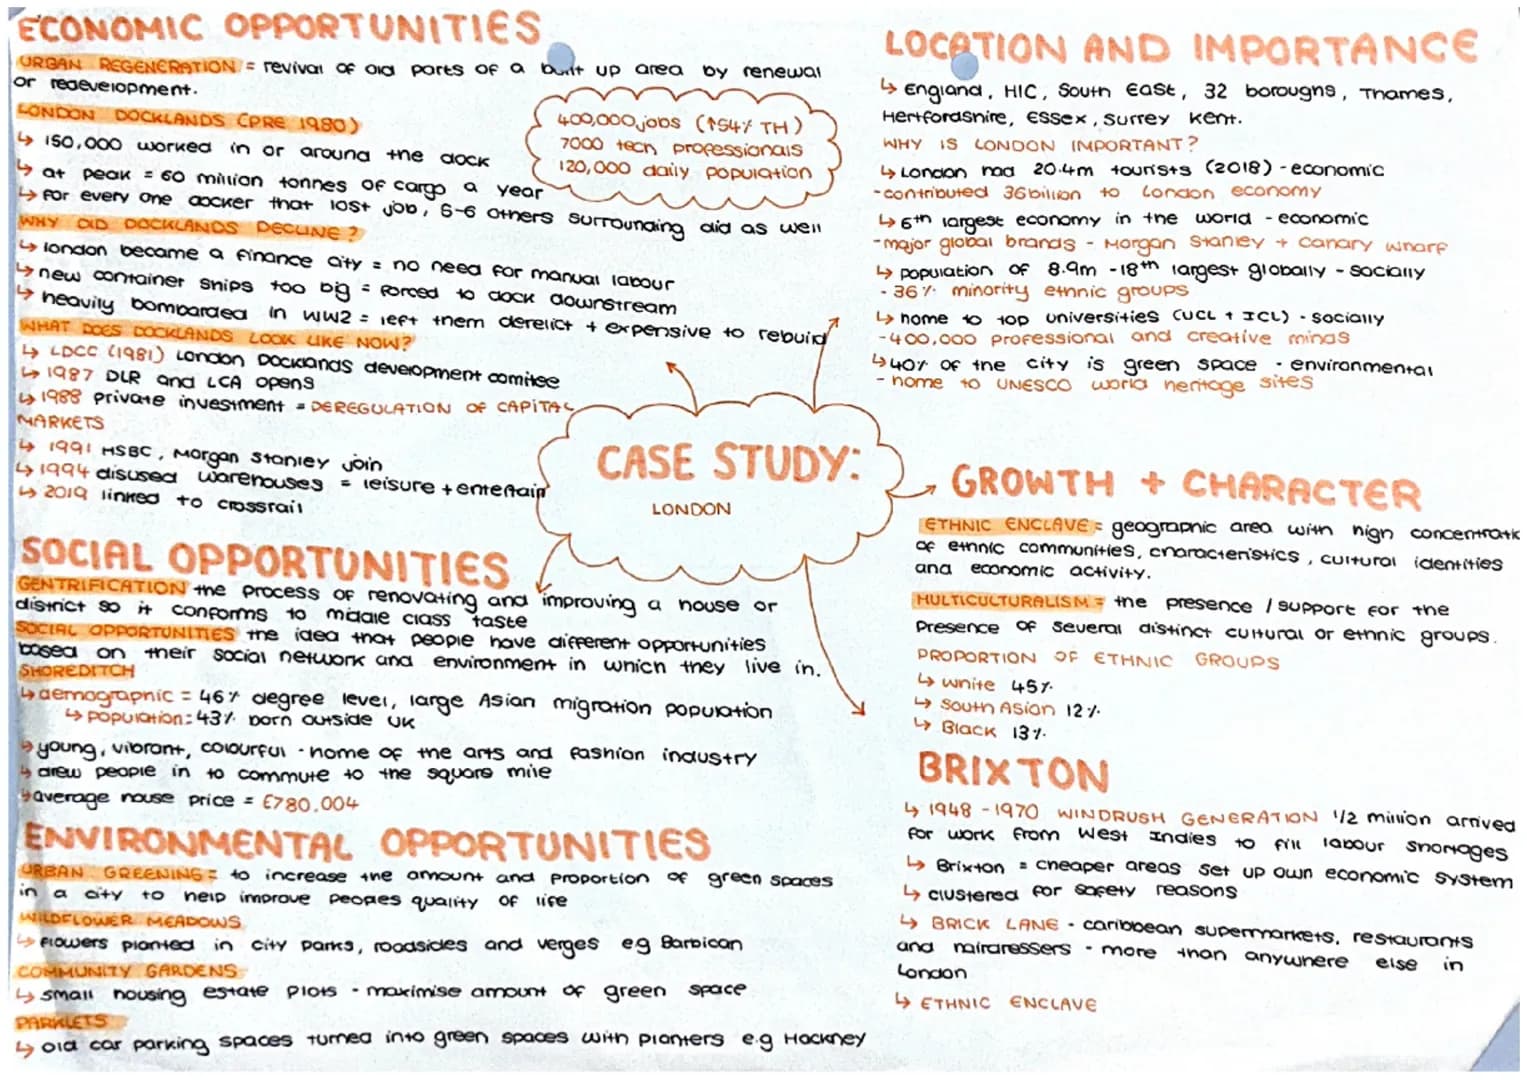 ECONOMIC OPPORTUNITIES
URBAN REGENERATION = revival of old parts of a built up area by renewal
or redevelopment.
LONDON DOCKLANDS (PRE 1980)
↳ 150,000 worked in or around the dock
↳ at peak = 60 million tonnes of cargo a year
↳ for every one docker that lost job, 5-6 others surrounding did as well
400,000 jobs (↑54% TH)
7000 tech professionals
120,000 daily population
WHY DID DOCKLANDS DECLINE?
↳ london became a finance city = no need for manual labour
↳ new container ships too big = forced to dock downstream
↳ heavily bombarded in WW2 = left them derelict + expensive to rebuild
WHAT DOES DOCKLANDS LOOK LIKE NOW?
↳ LDCC (1981) London Docklands development comitee
↳ 1987 DLR and LCA opens
↳ 1988 private investment = DEREGULATION OF CAPITAL
MARKETS
↳ 1991 HSBC, Morgan Stanley join
↳ 1994 disused warehouses = leisure + entertain
↳ 2019 linked to crossrail
CASE STUDY:
LONDON
SOCIAL OPPORTUNITIES
GENTRIFICATION the process of renovating and improving a house or
district so it conforms to middle class taste
SOCIAL OPPORTUNITIES the idea that people have different opportunities
based on their social network and environment in which they live in.
SHOREDITCH
↳ demographic = 46% degree level, large Asian migration population
↳ population: 43% born outside UK
↳ young, vibrant, colourful - home of the arts and fashion industry
↳ drew people in to commute to the square mile
↳ average house price = £780,004
ENVIRONMENTAL OPPORTUNITIES
URBAN GREENING = to increase the amount and proportion of green spaces
in a city to help improve peoples quality of life
WILDFLOWER MEADOWS
↳ flowers planted in city parks, roadsides and verges eg Barbican
COMMUNITY GARDENS
↳ small housing estate plots - maximise amount of green space
PARKLETS
↳ old car parking spaces turned into green spaces with planters e.g Hackney
LOCATION AND IMPORTANCE
↳ England, HIC, South East, 32 boroughs, Thames,
Hertfordshire, Essex, Surrey Kent.
WHY IS LONDON IMPORTANT?
↳ London had 20.4m tourists (2018) - economic
- contributed 36billion to London economy
↳ 6th largest economy in the world - economic
- major global brands - Morgan Stanley + Canary wharf
↳ population of 8.9m - 18th largest globally - socially
- 36% minority ethnic groups
↳ home to top universities (UCL + ICL) - socially
- 400,000 professional and creative minds
↳ 40% of the city is green space - environmental
- home to UNESCO world heritage sites
GROWTH + CHARACTER
ETHNIC ENCLAVE = geographic area with high concentratio
of ethnic communities, characteristics, cultural identities
and economic activity.
MULTICULTURALISM = the presence / support for the
presence of several distinct cultural or ethnic groups.
PROPORTION OF ETHNIC GROUPS
↳ White 45%
↳ South Asian 12%
↳ Black 13%
BRIXTON
↳ 1948 - 1970 WINDRUSH GENERATION 1/2 million arrived
for work from West Indies to fill labour shortages
↳ Brixton = cheaper areas set up own economic system
↳ clustered for safety reasons
↳ BRICK LANE - caribbean supermarkets, restaurants
and hairdressers - more than anywhere else in
London
↳ ETHNIC ENCLAVE